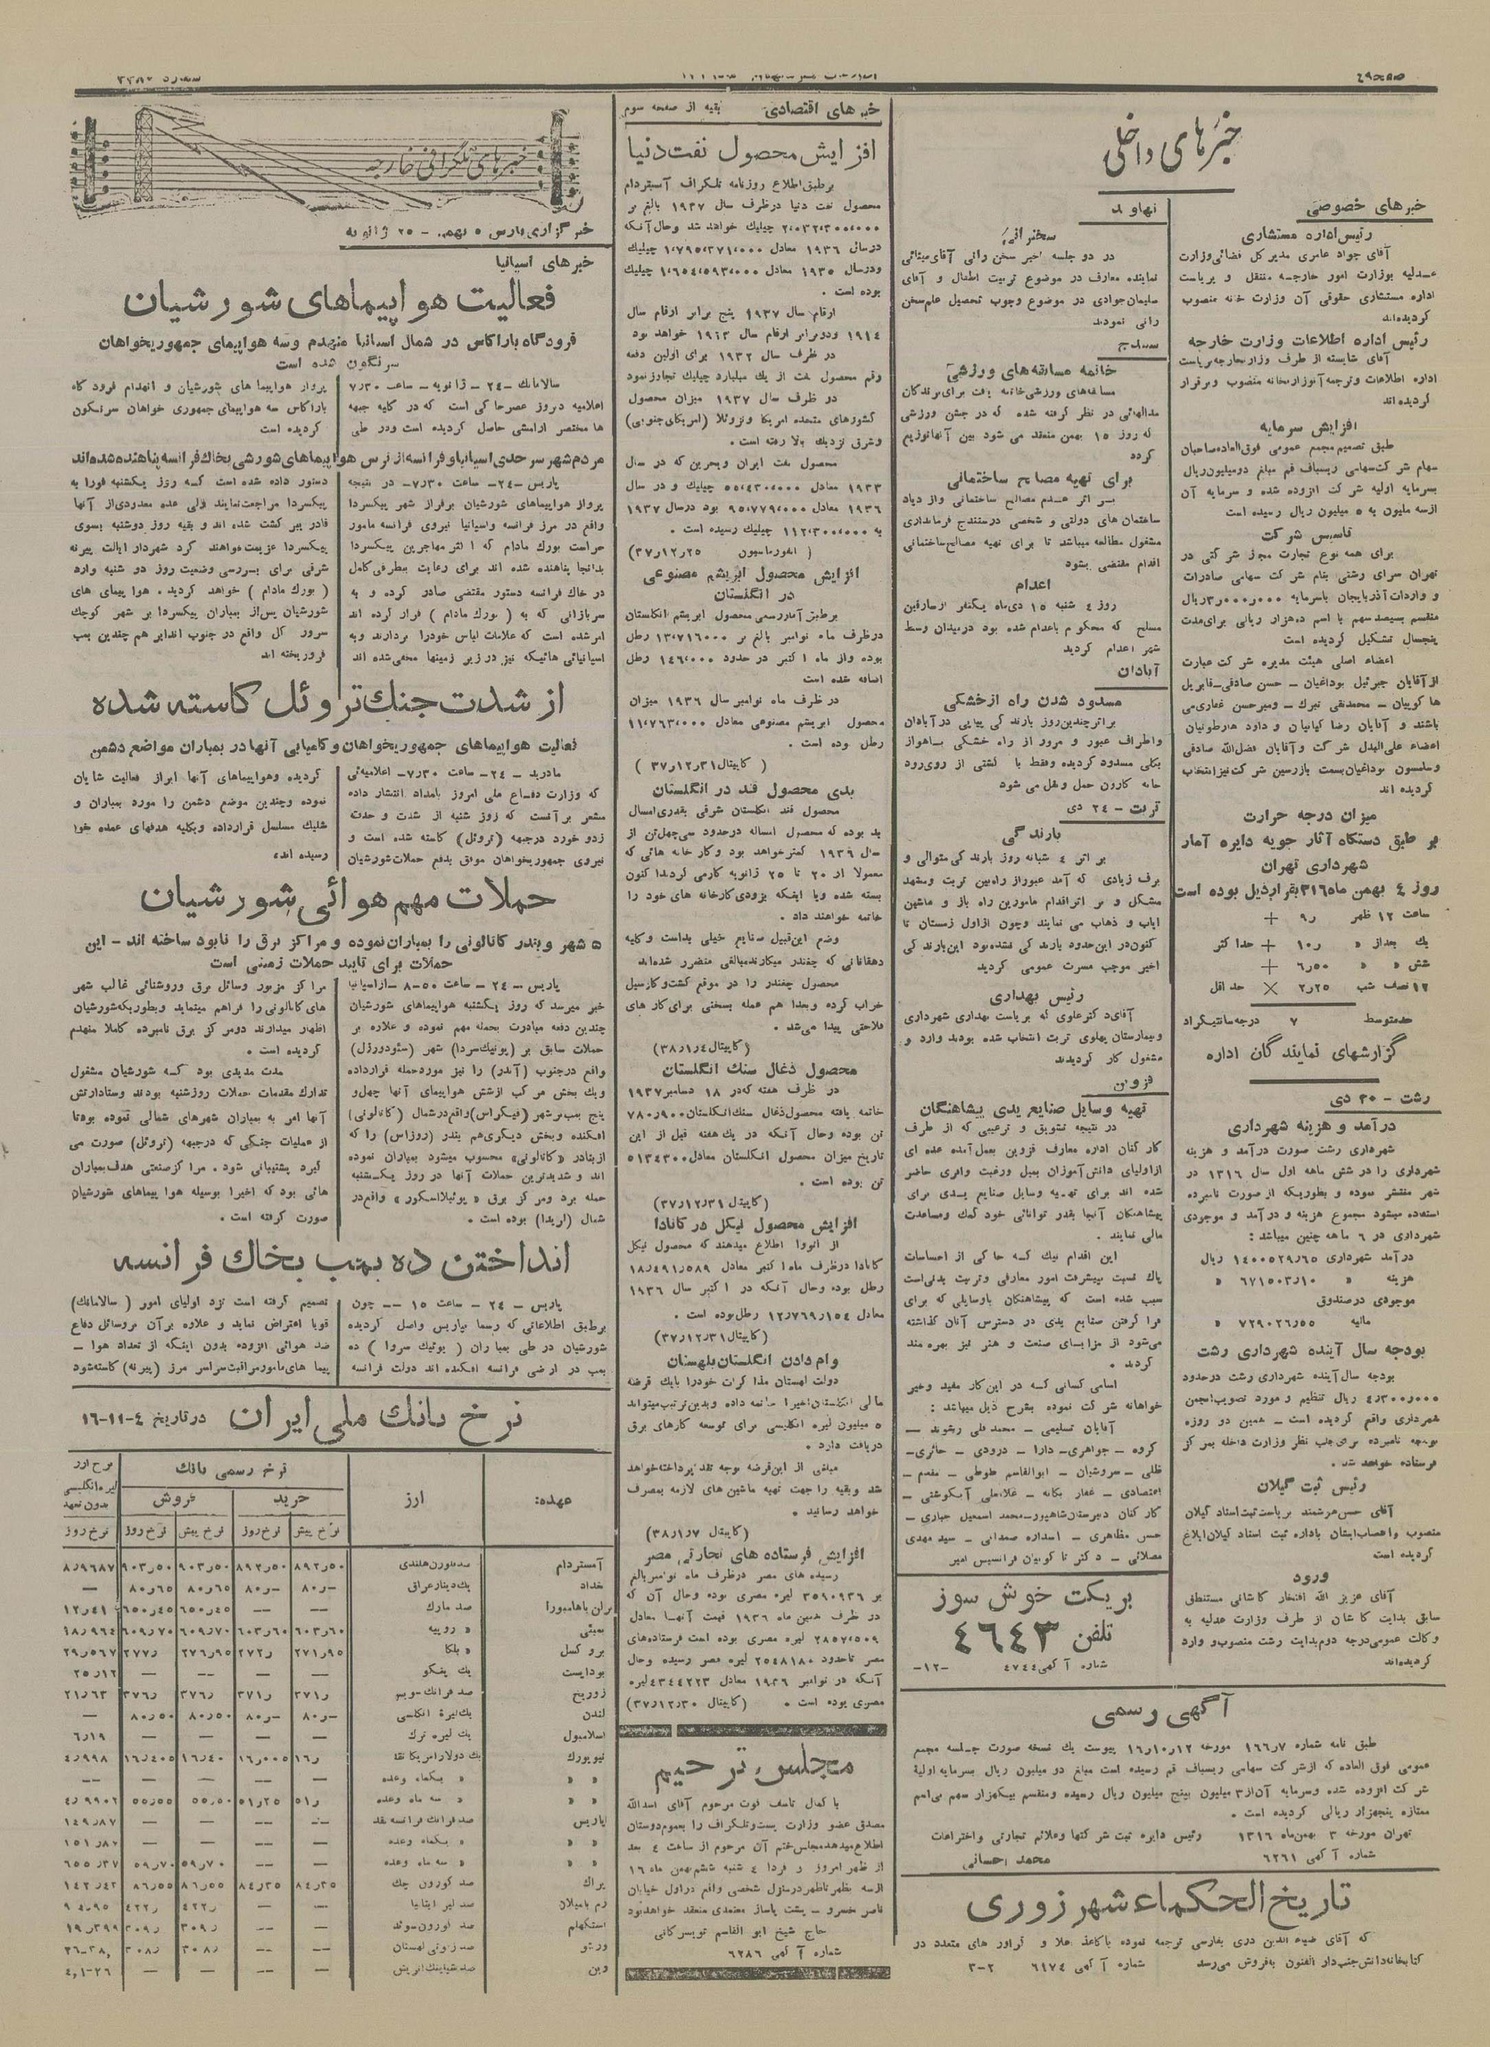 خبرهای داخلی
خبرهای خصوصی
رئیس اداره مستشاری
آقای جواد عامری مدیر کل قضائی وزارت
عدلیه بوزارت امور خارجه منتقل و بریاست
اداره مستشاری حقوقی آن وزارت خانه منصوب
گردیده‌اند
رئیس اداره اطلاعات وزارت خارجه
آقای شایسته از طرف وزارت خارجه بریاست
اداره اطلاعات و ترجمه آنوزارتخانه منصوب و برقرار
گردیده اند
افزایش سرمایه
طبق تصمیم مجمع عمومی فوق‌العاده صاحبان
سهام شرکت سهامی ریسباف قم مبلغ دو ملیون ریال
بسرمایه اولیه شرکت افزوده شده و سرمایه آن
از سه ملیون به ۵ میلیون ریال رسیده است
تاسیس شرکت
برای همه نوع تجارت مجاز شرکتی در
تهران سرای رشتی بنام شرکت سهامی صادرات
و واردات آذربایجان باسرمایه ۳٫۰۰۰٫۰۰۰ ریال
منقسم بسیصد سهم با اسم ده‌هزار ریالی برای مدت
پنجسال تشکیل گردیده است
اعضاء اصلی هیئت مدیره شرکت عبارت
از آقایان جبرئیل بوداغیان - حسن صادقی - فابریل
باشند و آقایان رضا کیانیان و داود هارطونیان
اعضاء علی‌البدل شرکت و آقایان فضل‌الله صادقی
و سامسون بوداغیان بسمت بازرسین شرکت نیز انتخاب
گردیده اند
میزان درجه حرارت
بر طبق دستگاه آثار جویه دایره آمار
شهرداری تهران
روز ۴ بهمن ماه ۳۱۶ بقرار ذیل بوده است
ساعت ۱۲ ظهر ۹٫ +
یک بعداز » ۱۰٫ + حداکثر
شش » » ۶٫۵۰ +
۱۲ نصف شب ۲٫۲۵ × حداقل
حدمتوسط ۷ درجه سانتیگراد
گزارشهای نمایندگان اداره
رشت - ۳۰ دی
درآمد و هزینه شهرداری
شهرداری رشت صورت درآمد و هزینه
شهرداری را در شش ماهه اول سال ۱۳۱۶ در
شهر منتشر نموده و بطوریکه از صورت نامبرده
استفاده میشود مجموع هزینه و درآمد و موجودی
شهرداری در ۶ ماهه چنین میباشد:
درآمد شهرداری ۱۴۰۰۵۲۹٫۶۵ ریال
هزینه » ۶۷۱۵۰۳٫۱۰ »
موجودی در صندوق
مالیه ۷۲۹۰۲۶٫۵۵ »
بودجه سال آینده شهرداری رشت
بودجه سال آینده شهرداری رشت در حدود
۴٫۳۰۰٫۰۰۰ ریال تنظیم و مورد تصویب انجمن
شهرداری واقع گردیده است - همین دو روزه
بودجه نامبرده برای جلب نظر وزارت داخله بمرکز
فرستاده خواهد شد.
رئیس ثبت گیلان
آقای حسن هرشمند بریاست ثبت اسناد گیلان
منصوب و احصاب ایشان باداره ثبت اسناد گیلان ابلاغ
گردیده است
ورود
آقای عزیز الله افتخار کاشانی مستنطق
سابق بدایت کاشان از طرف وزارت عدلیه به
وکالت عمومی درجه دوم بدایت رشت منصوب و وارد
گردیده‌اند
نهاوند
سخنرانی
در دو جلسه اخیر سخن رانی آقای مینائی
نماینده معارف در موضوع تربیت اطفال و آقای
سلیمان جوادی در موضوع وجوب تحصیل علم سخن
رانی نمودند
سنندج
خاتمه مسابقه‌های ورزشی
مسابقه‌های ورزشی خاتمه یافت برای برندگان
مدالهائی در نظر گرفته شده که در جشن ورزشی
که روز ۱۵ بهمن منعقد می شود بین آنها توزیع
گردد
برای تهیه مصالح ساختمانی
بر اثر عدم مصالح ساختمانی و ازدیاد
ساختمان های دولتی و شخصی در سنندج فرمانداری
مشغول مطالعه میباشد تا برای تهیه مصالح ساختمانی
اقدام مقتضی بشود
اعدام
روز ۴ شنبه ۱۵ دی‌ماه یکنفر از سارقین
مسلح که محکوم باعدام شده بود در میدان وسط
شهر اعدام گردید
آبادان
مسدود شدن راه از خشکی
براثر چندین روز بارندگی پیاپی در آبادان
و اطراف عبور و مرور از راه خشکی باهواز
بکلی مسدود گردیده و فقط با کشتی از روی رود
خانه کارون حمل و نقل می شود
تربت - ۲۴ دی
بارندگی
بر اثر ۴ شبانه روز بارندگی متوالی و
برف زیادی که آمد عبور از راه بین تربت و مشهد
مشکل و بر اثر اقدام مامورین راه باز و ماشین
ایاب و ذهاب می نمایند و چون از اول زمستان تا
کنون در این حدود بارندگی نشده بود این بارندگی
اخیر موجب مسرت عمومی گردید
رئیس بهداری
آقای دکتر علوی که بریاست بهداری شهرداری
و بیمارستان پهلوی تربت انتخاب شده بودند وارد و
مشغول کار گردیدند
قزوین
تهیه وسایل صنایع یدی پیشاهنگان
در نتیجه تشویق و ترغیبی که از طرف
کارکنان اداره معارف قزوین بعمل آمده عده ای
از اولیای دانش‌آموزان بمیل و رغبت وافری حاضر
شده اند برای تهیه وسایل صنایع یدی برای
پیشاهنگان آنجا بقدر توانائی خود کمک و مساعدت
مالی نمایند.
این اقدام نیک که حاکی از احساسات
پاک نسبت بپیشرفت امور معارفی و تربیت بدنی است
سبب شده است که پیشاهنگان باوسایلی که برای
فرا گرفتن صنایع یدی در دسترس آنان گذاشته
می‌شود از مزایای صنعت و هنر نیز بهره مند
گردند.
اسامی کسانی که در این کار مفید و خیر
خواهانه شرکت نموده بشرح ذیل میباشد:
آقایان تسلیمی - محمد قلی ریشوند -
گروه - جواهری - دارا - درودی - حائری -
ظلی - سروشیان - ابوالقاسم طوطی - مقدم -
کارکنان دبیرستان شاهپور - محمد اسمعیل جباری -
حسن مظاهری - اسداله صمدانی - سید مهدی
مصلائی - دکتر تا کومیان فرانسیس امیر
بریکت خوش سوز
تلفن ۴۶۴۳
شماره آگهی ۴۷۴۴ -۱۲-
آگهی رسمی
طبق نامه شماره ۱۶۶٫۷ مورخه ۱۶٫۱۰٫۱۲ پیوست یک نسخه صورت جلسه مجمع
عمومی فوق العاده که از شرکت سهامی ریسباف قم رسیده است مبلغ دو میلیون ریال بسرمایه اولیهٔ
شرکت افزوده شده و سرمایه آن از ۳ میلیون بپنج میلیون ریال رسیده و منقسم بیکهزار سهم بی‌اسم
ممتازه پنجهزار ریالی گردیده است.
تهران مورخه ۳ بهمن‌ماه ۱۳۱۶ رئیس دایره ثبت شرکتها و علائم تجارتی و اختراعات
شماره آگهی ۶۲۶۱ محمد احسانی
تاریخ الحکماء شهرزوری
که آقای ضیاء الدین دری بفارسی ترجمه نموده باکاغذ اعلا و گراور های متعدد در
کتابخانه دانش جنب دار الفنون بفروش می‌رسد شماره آگهی ۶۱۷۴ ۳-۲
خبرهای اقتصادی بقیه از صفحه سوم
افزایش محصول نفت دنیا
برطبق اطلاع روزنامه تلگراف آمستردام
محصول نفت دنیا در ظرف سال ۱۹۳۷ بالغ بر
۲٬۰۳۲٬۳۰۵٬۰۰۰ چیلیک خواهد شد و حال آنکه
در سال ۱۹۳۶ معادل ۱٬۷۹۵٬۳۷۱٬۰۰۰ چیلیک
و در سال ۱۹۳۵ معادل ۱٬۶۵۴٬۵۹۳٬۰۰۰ چیلیک
بوده است.
ارقام سال ۱۹۳۷ پنج برابر ارقام سال
۱۹۱۴ و دو برابر ارقام سال ۱۹۲۳ خواهد بود
در ظرف سال ۱۹۳۲ برای اولین دفعه
رقم محصول نفت از یک میلیارد چیلیک تجاوز نمود
در ظرف سال ۱۹۳۷ میزان محصول
کشورهای متحده امریکا و نزوئلا (امریکای جنوبی)
و شرق نزدیک بالا رفته است.
محصول نفت ایران و بحرین که در سال
۱۹۳۳ معادل ۵۵٬۴۳۰٬۰۰۰ چیلیک و در سال
۱۹۳۶ معادل ۹۵٬۷۷۹٬۰۰۰ بود در سال ۱۹۳۷
به ۱۱۲٬۳۰۰٬۰۰۰ چیلیک رسیده است.
(انفورماسیون ۳۷٫۱۲٫۲۵)
افزایش محصول ابریشم مصنوعی
در انگلستان
برطبق آمار رسمی محصول ابریشم انگلستان
در ظرف ماه نوامبر بالغ بر ۱۳٬۷۱۶٬۰۰۰ رطل
بوده و از ماه اکتبر در حدود ۱۴۶٬۰۰۰ رطل
اضافه شده است
در ظرف ماه نوامبر سال ۱۹۳۶ میزان
محصول ابریشم مصنوعی معادل ۱۱٬۷۶۳٬۰۰۰
رطل بوده است.
(کاپیتال ۳۷٫۱۲٫۳۱)
بدی محصول قند در انگلستان
محصول قند انگلستان شرقی بقدری امسال
بد بوده که محصول امساله در حدود سی‌چهل تن از
سال ۱۹۳۶ کمتر خواهد بود و کارخانه هائی که
معمولا از ۲۰ تا ۲۵ ژانویه کار می کردند اکنون
بسته شده و یا اینکه بزودی کارخانه های خود را
خاتمه خواهند داد.
وضع این قبیل صنایع خیلی بد است و کلیه
دهقانانی که چغندر میکارند مبالغی متضرر شده‌اند
محصول چغندر را در موقع کشت و کار سیل
خراب کرده و بعدا هم عمله بسختی برای کار های
فلاحتی پیدا می‌شد.
(کاپیتال ۳۸٫۱٫۴)
محصول ذغال سنگ انگلستان
در ظرف هفته که در ۱۸ دسامبر ۱۹۳۷
خاتمه یافته محصول ذغال سنک انگلستان ۷۸۰٫۹۰۰
تن بوده و حال آنکه در یک هفته قبل از این
تاریخ میزان محصول انگلستان معادل ۵۱۳۴۳۰۰
تن بوده است.
(کاپیتال ۳۷٫۱۲٫۳۱)
افزایش محصول نیکل در کانادا
از اتووا اطلاع میدهند که محصول نیکل
کانادا در ظرف ماه اکتبر معادل ۱۸٫۴۹۱٫۵۸۹
رطل بوده و حال آنکه در اکتبر سال ۱۹۳۶
معادل ۱۲٫۷۶۹٫۱۵۴ رطل بوده است.
(کاپیتال ۳۷٫۱۲٫۳۱)
وام دادن انگلستان بلهستان
دولت لهستان مذاکرات خود را بابت قرضه
مالی انگلستان اخیرا خاتمه داده و بدین ترتیب میتواند
۵ میلیون لیره انگلیسی برای توسعه کارهای برق
دریافت دارد.
مبلغی از این قرضه بوجه نقد پرداخته خواهد
شد و بقیه را جهت تهیه ماشین های لازمه بمصرف
خواهد رسانید.
(کاپیتال ۳۸٫۱٫۷)
افزایش فرستاده های تجارتی مصر
رسیده های مصر در ظرف ماه نوامبر بالغ
بر ۳۵۹۰۹۳۶ لیره مصری بوده و حال آن که
در ظرف همین ماه ۱۹۳۶ قیمت آنها معادل
۲۸۵۷٬۵۰۹ لیره مصری بوده است فرستاده‌های
مصر تا حدود ۲۵۴۸۱۸۰ لیره مصر رسیده و حال
آنکه در نوامبر ۱۹۳۶ معادل ۴۳۴۴۲۲۳ لیره
مصری بوده است. (کاپیتال ۳۷٫۱۲٫۳۰)
مجلس ترحیم
با کمال تاسف فوت مرحوم آقای اسدالله
مصدق عضو وزارت پست و تلگراف را بعموم دوستان
اطلاع میدهد مجلس ختم آن مرحوم از ساعت ۴ بعد
از ظهر امروز و فردا ۴ شنبه ششم بهمن ماه ۱۶
از سه بظهر تا ظهر در منزل شخصی واقع در اول خیابان
ناصر خسرو - پشت پاساژ معتمدی منعقد خواهد بود
حاج شیخ ابو القاسم تویسرکانی
شماره آگهی ۶۲۸۶
خبرهای تلگرافی خارجه
خبرگزاری پارس ۵ بهمن - ۲۵ ژانویه
خبرهای اسپانیا
فعالیت هواپیماهای شورشیان
فرودگاه باراکاس در شمال اسپانیا منهدم و سه هواپیمای جمهوریخواهان
سرنگون شده است
سالامانک - ۲۴ - ژانویه - ساعت ۷٫۳۰
اعلامیه دیروز عصر حاکی است که در کلیه جبهه
ها مختصر آرامشی حاصل گردیده است و در طی
پرواز هواپیما های شورشیان و انهدام فرودگاه
باراکاس سه هواپیمای جمهوری خواهان سرنگون
گردیده است
مردم شهر سرحدی اسپانیا و فرانسه از ترس هواپیماهای شورشی بخاک فرانسه پناهنده شده‌اند
پاریس - ۲۴ - ساعت ۷٫۳۰ - در نتیجه
پرواز هواپیماهای شورشیان بر فراز شهر پیکسردا
واقع در مرز فرانسه و اسپانیا نیروی فرانسه مامور
حراست بورک مادام که اکثر مهاجرین پیکسردا
بدانجا پناهنده شده اند برای رعایت بیطرفی کامل
در خاک فرانسه دستور مقتضی صادر کرده و به
سربازانی که به (بورک مادام) فرار کرده اند
امر شده است که علامات لباس خود را بردارند و به
اسپانیائی هائیکه نیز در زیر زمینها مخفی شده اند
دستور داده شده است که روز یکشنبه فورا به
پیکسردا مراجعت نمایند ولی عده معدودی از آنها
قادر ببرگشت شده اند و بقیه روز دوشنبه بسوی
پیکسردا عزیمت خواهند کرد شهردار ایالت پیرنه
شرقی برای بررسی وضعیت روز دو شنبه وارد
(بورک مادام) خواهد گردید. هواپیمای های
شورشیان پس از بمباران پیکسردا بر شهر کوچک
سرور کل واقع در جنوب اندایر هم چندین بمب
فروریخته اند
از شدت جنک تروئل کاسته شده
فعالیت هواپیماهای جمهوریخواهان و کامیابی آنها در بمباران مواضع دشمن
مادرید - ۲۴ - ساعت ۷٫۳۰ - اعلامیه‌ئی
که وزارت دفاع ملی امروز بامداد انتشار داده
مشعر بر آنست که روز شنبه از شدت و حدت
زدو خورد در جبهه (تروئل) کاسته شده است و
نیروی جمهوریخواهان موفق بدفع حملات شورشیان
گردیده و هواپیماهای آنها ابراز فعالیت شایان
نموده و چندین موضع دشمن را مورد بمباران و
شلیک مسلسل قرار داده و بکلیه هدفهای عمده خود
رسیده اند
حملات مهم هوائی شورشیان
۵ شهر و بندر کاتالونی را بمباران نموده و مراکز برق را نابود ساخته اند - این
حملات برای تایید حملات زمینی است
پاریس - ۲۴ - ساعت ۸-۵۰ - از اسپانیا
خبر میرسد که روز یکشنبه هواپیماهای شورشیان
چندین دفعه مبادرت بحمله مهم نموده و علاوه بر
حملات سابق بر (پوئیک سردا) شهر (سئودورژل)
واقع در جنوب (آندر) را نیز مورد حمله قرار داده
و یک بخش مرکب از شش هواپیمای آنها چهل و
پنج بمب بر شهر (فیگراس) واقع در شمال (کاتالونی)
افکنده و بخش دیگری هم بندر (روزاس) را که
از بنادر «کاتالونی» محسوب میشود بمباران نموده
اند و شدیدترین حملات آنها در روز یکشنبه
حمله برد و مرکز برق « پوئبلااسکور » واقع در
شمال (لریدا) بوده است.
مراکز مزبور وسائل برق و روشنائی غالب شهر
های کاتالونی را فراهم مینماید و بطوریکه شورشیان
اظهار میدارند دو مرکز برق نامبرده کاملا منهدم
گردیده است.
مدت مدیدی بود که شورشیان مشغول
تدارک مقدمات حملات روز شنبه بودند و ستاد ارتش
آنها امر به بمباران شهرهای شمالی نموده بود تا
از عملیات جنگی که در جبهه (تروئل) صورت می
گیرد پشتیبانی شود. مراکز صنعتی هدف بمباران
هائی بود که اخیرا بوسیله هواپیماهای شورشیان
صورت گرفته است.
انداختن ده بمب بخاک فرانسه
پاریس - ۲۴ - ساعت ۱۵ -- چون
برطبق اطلاعاتی که رسما بپاریس واصل گردیده
شورشیان در طی بمباران (پوئیک سردا) ده
بمب در اراضی فرانسه افکنده اند دولت فرانسه
تصمیم گرفته است نزد اولیای امور (سالامانک)
قویا اعتراض نماید و علاوه بر آن بر وسائل دفاع
ضد هوائی افزوده بدون اینکه از تعداد هوا -
پیما های مامور مراقبت سراسر مرز (پیرنه) کاسته شود
نرخ بانک ملی ایران در تاریخ ۴-۱۱-۱۶
عهده: ارز نرخ رسمی بانک نرخ ارز
خرید فروش لیره انگلیسی
بدون تعهد
نرخ پیش نرخ روز نرخ پیش نرخ روز نرخ روز
آمستردام صد فلورن هلندی ۸۹۲٫۵۰ ۸۹۲٫۵۰ ۹۰۳٫۵۰ ۹۰۳٫۵۰ ۸٫۹۶۸۷
بغداد یک دینار عراقی ۸۰٫- ۸۰٫- ۸۰٫۶۵ ۸۰٫۶۵ —
برلن یا هامبورک صد مارک — — ۶۵۰٫۴۵ ۶۵۰٫۴۵ ۱۲٫۴۱
بمبئی » روپیه ۶۰۳٫۶۰ ۶۰۳٫۶۰ ۶۰۹٫۷۰ ۶۰۹٫۷۰ ۱۸٫۹۶۴
بروکسل » بلکا ۲۷۱٫۹۵ ۲۷۲٫ ۲۷۶٫۹۵ ۲۷۷٫ ۲۹٫۵۶۷
بوداپست یک پنگو — — — — ۲۵٫۱۲
زوریخ صد فرانک سویس ۳۷۱٫ ۳۷۱٫ ۳۷۶٫ ۳۷۶٫ ۲۱٫۶۳
لندن یک لیرهٔ انگلیسی ۸۰٫- ۸۰٫- ۸۰٫۵۰ ۸۰٫۵۰ —
اسلامبول یک لیره ترک — — — — ۶٫۱۹
نیویورک یک دولار امریکا نقد ۱۶٫ ۱۶٫۰۰۵ ۱۶٫۴۰ ۱۶٫۴۰۵ ۴٫۹۹۸
» » » یکماه وعده — — — — —
» » » سه ماه وعده ۵۱٫ ۵۱٫۲۵ ۵۵٫۵۰ ۵۵٫۵۵ ۴٫۹۹۰۶
پاریس صد فرانک فرانسه نقد — — — — ۱۴۹٫۸۷
» » » یکماه وعده — — — — ۱۵۱٫۸۷
» » » سه ماه وعده — — ۵۹٫۷۰ ۵۹٫۷۰ ۶۵۵٫۳۷
پراگ صد کورون چک ۸۴٫۳۵ ۸۴٫۳۵ ۸۶٫۵۵ ۸۶٫۵۵ ۱۴۲٫۴۲
رم یا میلان صد لیر ایتالیا — — ۴۲۲٫ ۴۲۲٫ ۹۴٫۹۵
استکهلم صد کورون سوئد — — ۳۰۹٫ ۳۰۹٫ ۱۹٫۳۹۹
ورشو صد زلوتی لهستان — — ۳۰۸٫ ۳۰۸٫ ۲۶-۳۸٫
وین صد شیلینک اتریش — — — — ۲۶-۴٫۱